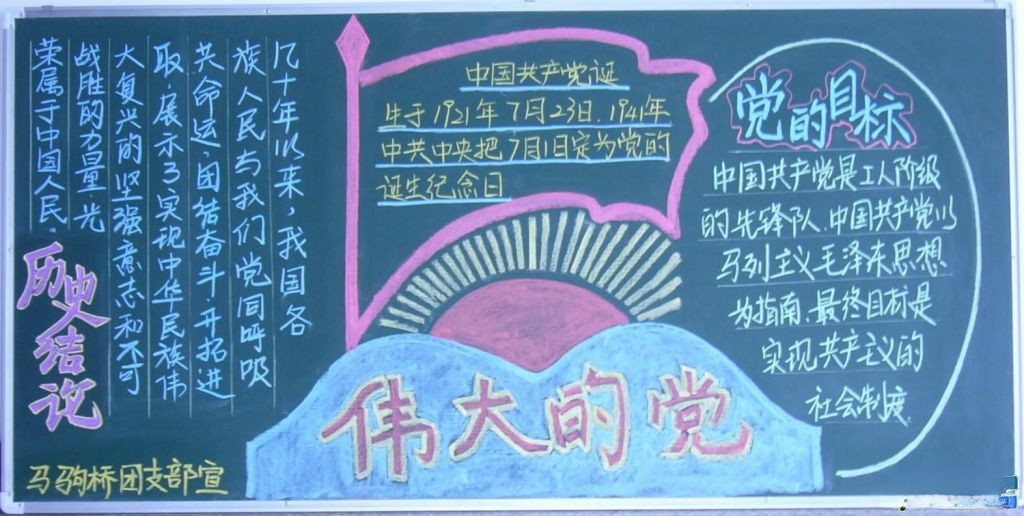 中国共产党诞
生于1921年7月23日.1941年
中共中央把7月1日定为党的
诞生纪念日
党的目标
中国共产党是工人阶级
的先锋队.中国共产党以
马列主义毛泽东思想
为指南.最终目标是
实现共产主义的
社会制度.
几十年以来,我国各
族人民与我们党同呼吸
共命运,团结奋斗.开拓进
取.展示了实现中华民族伟
大复兴的坚强意志和不可
战胜的力量.光
荣属于中国人民.
历史结论
伟大的党
马驹桥团支部宣